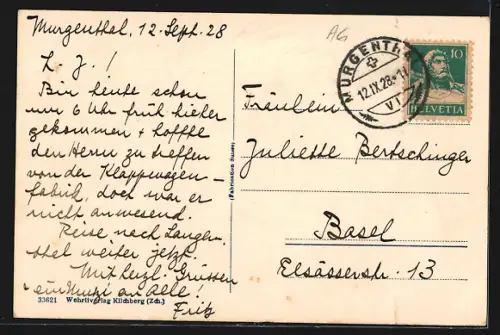 Murgenthal, 12 Sept. 28
AG
L. J. !
Bin heute schon
um 6 Uhr früh hieher
gekommen + hoffte
den Herrn zu treffen
von der Klappwagen-
fabrik, doch war er
nicht anwesend.
Reise nach Langen-
thal weiter jetzt.
Mit herzl. Grüssen
an alle!
Fritz
33621 Wehrliverlag Kilchberg (Zch.)
MURGENTHAL
12.IX.28
VI
10
HELVETIA
Fräulein
Juliette Bertschinger
Basel
Elsässerstr. 13